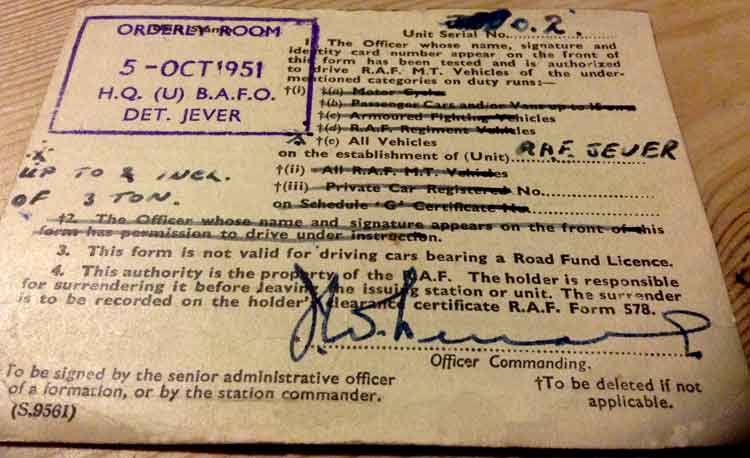 ORDERLY ROOM
5-OCT 1951
H.Q. (U) B.A.F.O.
DET. JEVER
Unit Serial No. O.2.
1. The Officer whose name, signature and
identity card number appear on the front of
this form has been tested and is authorized
to drive R.A.F. M.T. Vehicles of the under-
mentioned categories on duty runs:—
†(i) †(a) Motor Cycle
†(b) Passenger Cars and/or Vans up to 15 cwt
†(c) Armoured Fighting Vehicles
†(d) R.A.F. Regiment Vehicles
†(e) All Vehicles
on the establishment of (Unit) RAF. JEVER
UP TO & INCL.
OF 3 TON.
†(ii) All R.A.F. M.T. Vehicles
†(iii) Private Car Registered No.
on Schedule 'G' Certificate No.
†2. The Officer whose name and signature appears on the front of this
form has permission to drive under instruction.
3. This form is not valid for driving cars bearing a Road Fund Licence.
4. This authority is the property of the R.A.F. The holder is responsible
for surrendering it before leaving the issuing station or unit. The surrender
is to be recorded on the holder's clearance certificate R.A.F. Form 578.
Officer Commanding.
To be signed by the senior administrative officer
of a formation, or by the station commander.
†To be deleted if not
applicable.
(S.9561)